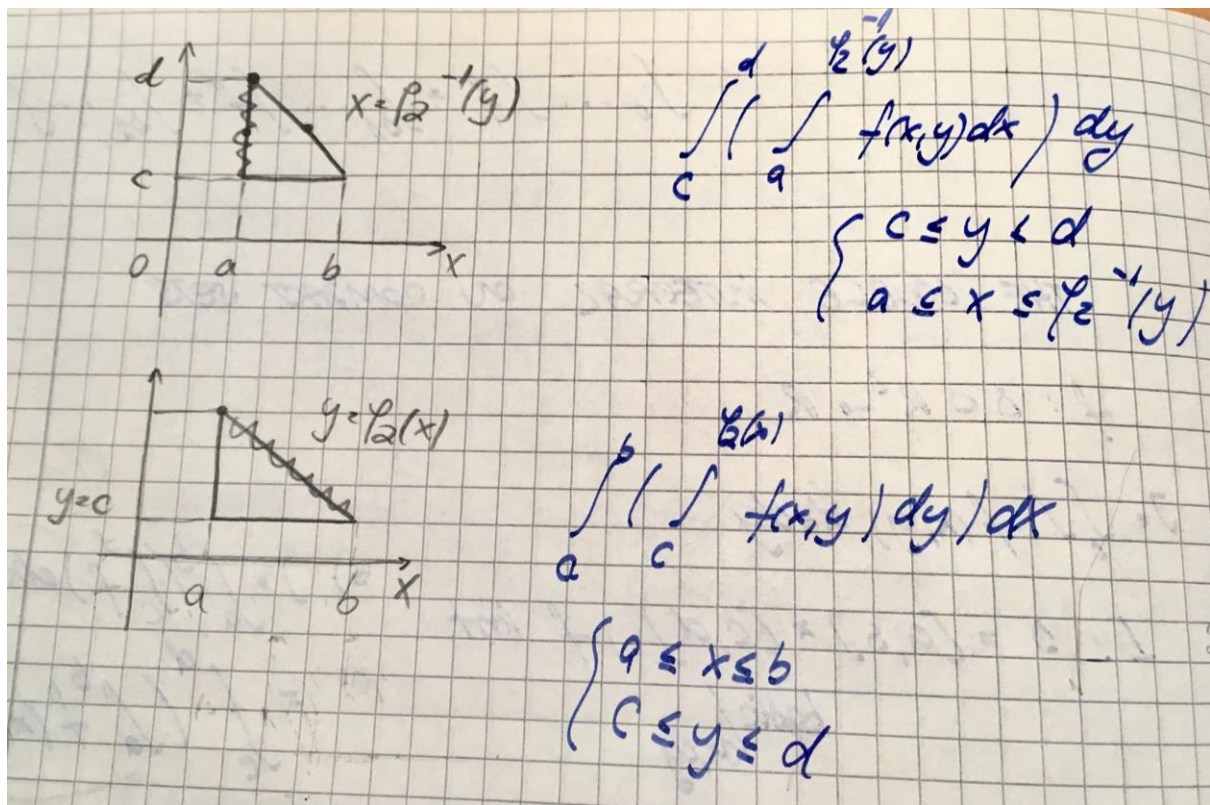 d
x = φ₂⁻¹(y)
c
0 a b x
∫_c^d ( ∫_a^{φ₂⁻¹(y)} f(x,y)dx ) dy
{ c ≤ y ≤ d
a ≤ x ≤ φ₂⁻¹(y)
y = φ₂(x)
y=c
a b x
∫_a^b ( ∫_c^{φ₂(x)} f(x,y) dy ) dx
{ a ≤ x ≤ b
c ≤ y ≤ d